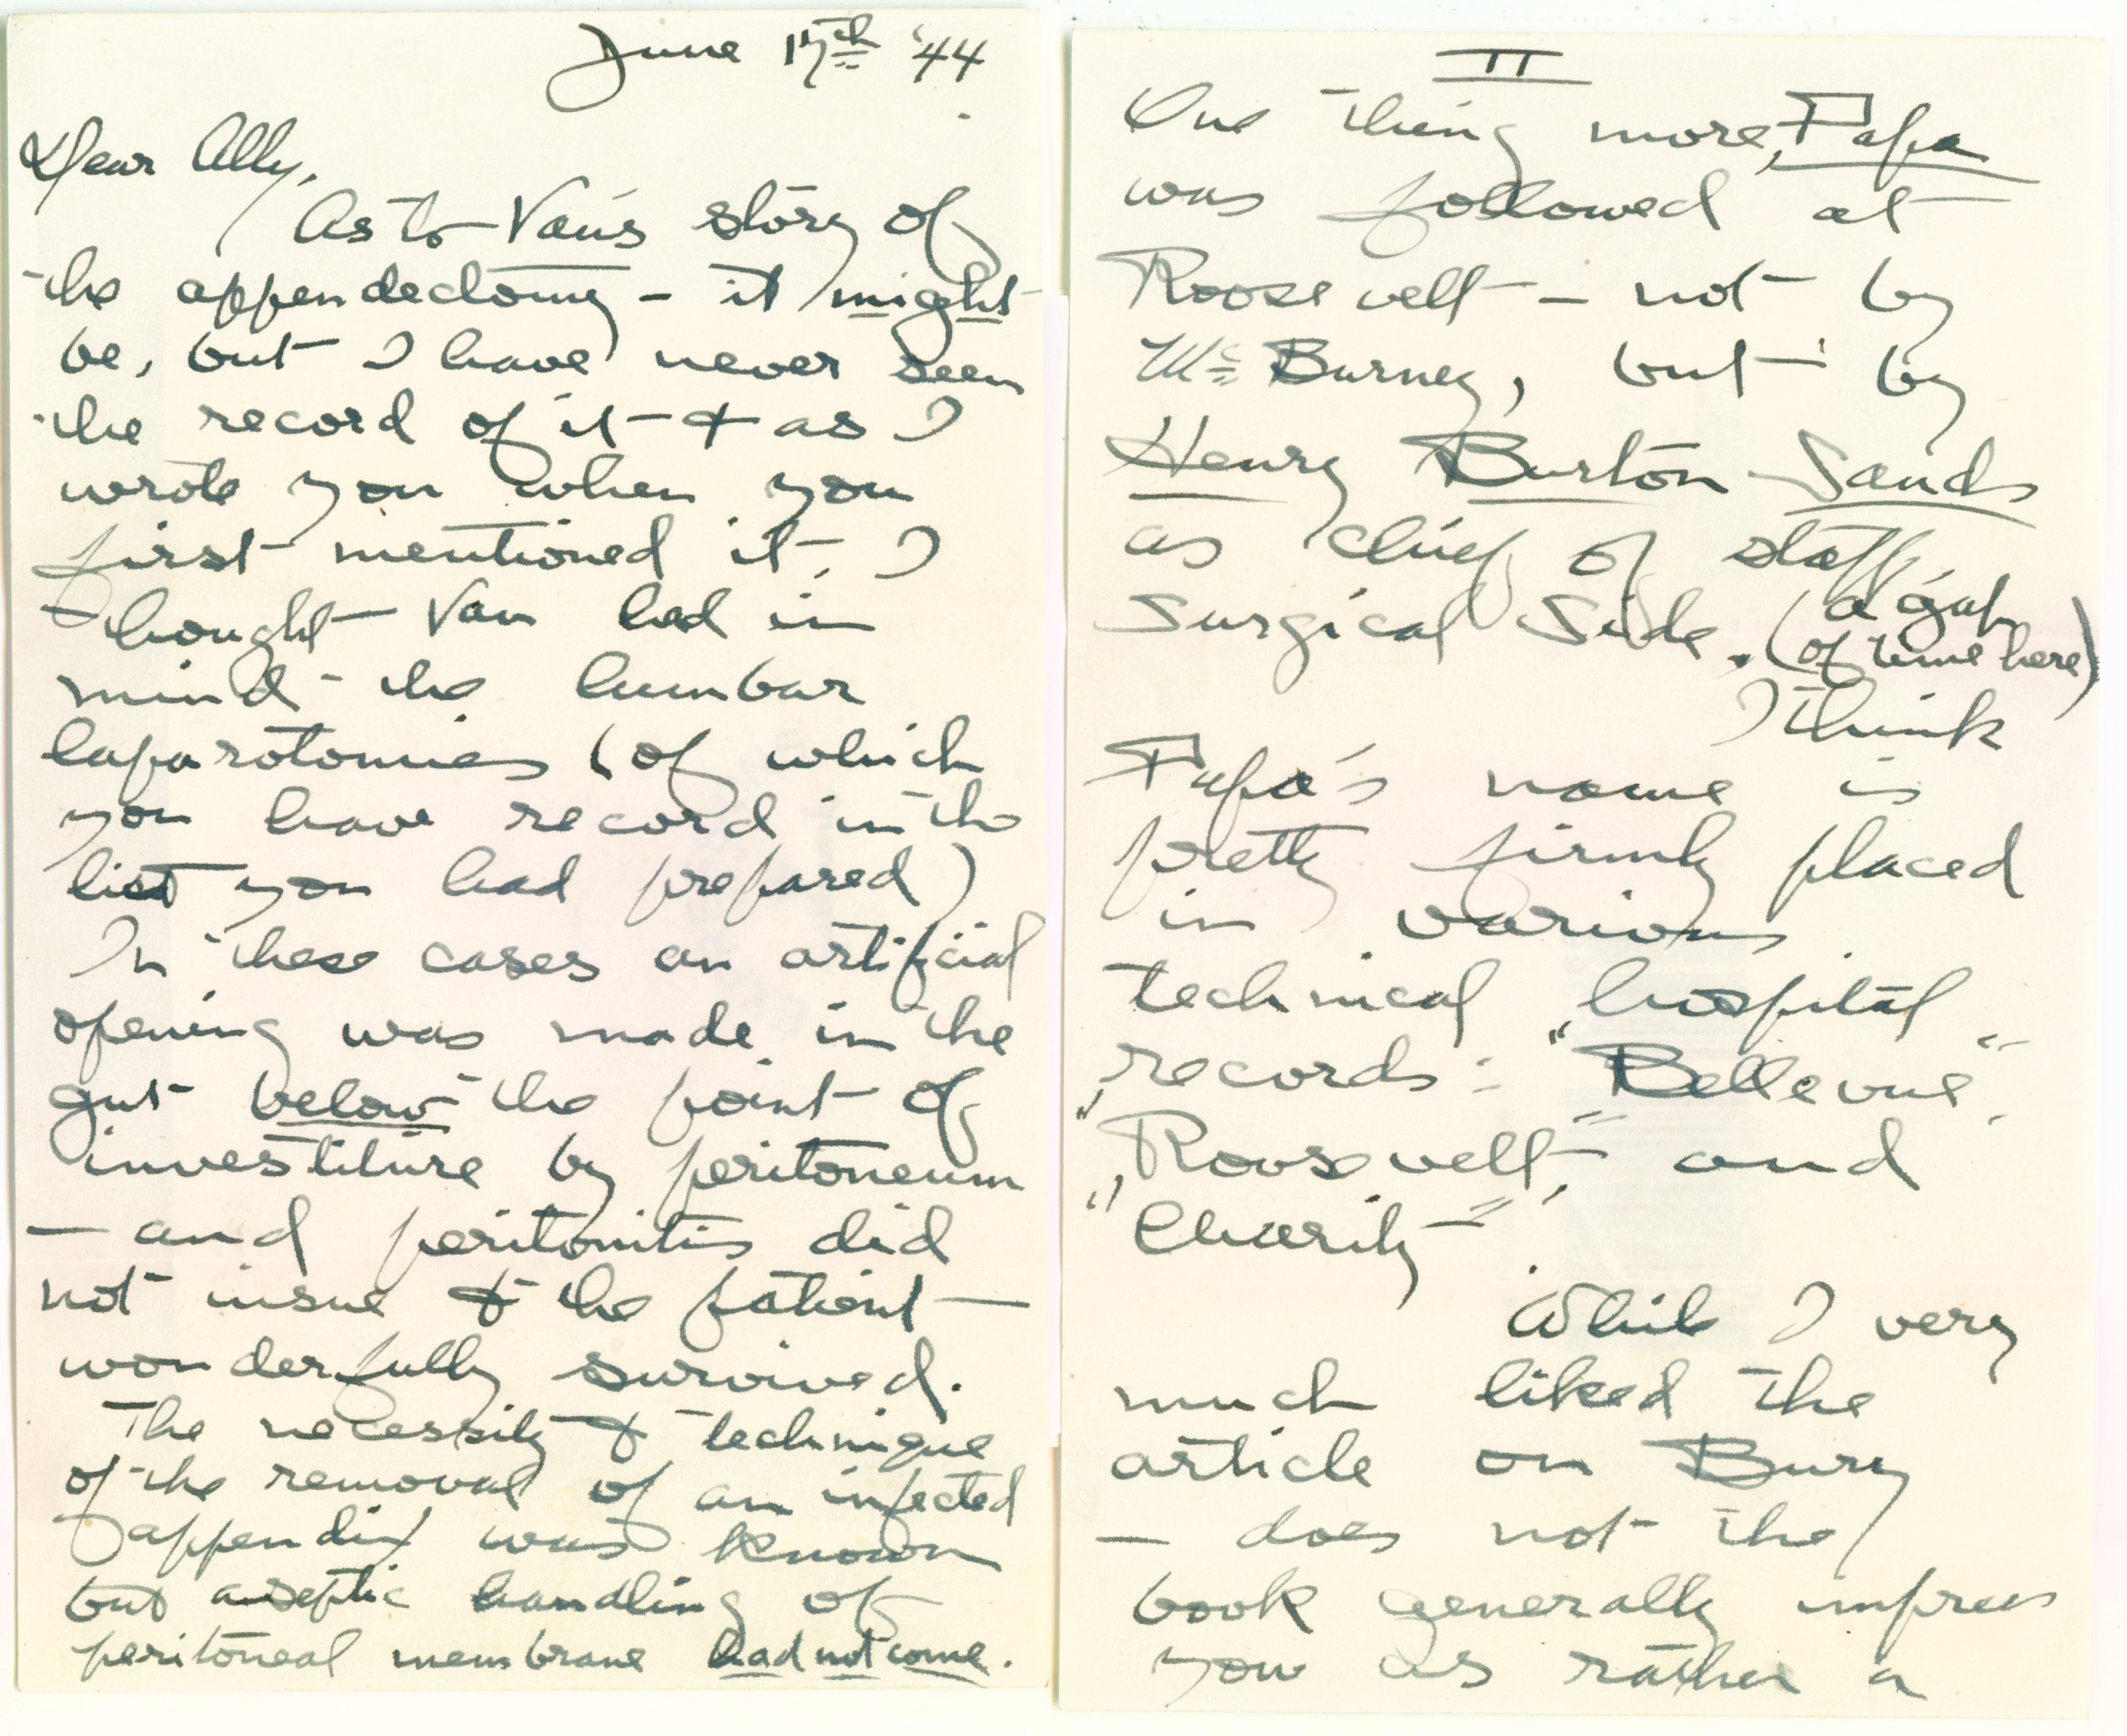 June 17th '44
Dear Ally,
As to Van's story of
the appendectomy - it might
be, but I have never seen
the record of it - & as I
wrote you when you
first mentioned it, I
thought Van had in
mind the lumbar
laparotomies (of which
you have record in the
list you had prepared)
In these cases an artificial
opening was made in the
gut below the point of
investiture by peritoneum
- and peritonitis did
not insue & the patient -
wonderfully survived.
The necessity & technique
of the removal of an infected
appendix was known
but aseptic handling of
peritoneal membrane had not come.
II
One thing more, Papa
was followed at
Roosevelt - not by
McBurney, but by
Henry Burton Sands
as chief of staff,
Surgical Side. (a gap
of time here)
I think
Papa's name is
pretty firmly placed
in various
technical hospital
records: "Bellevue",
"Roosevelt", and
"Charity".
While I very
much liked the
article on Bury
- does not the
book generally impress
you as rather a